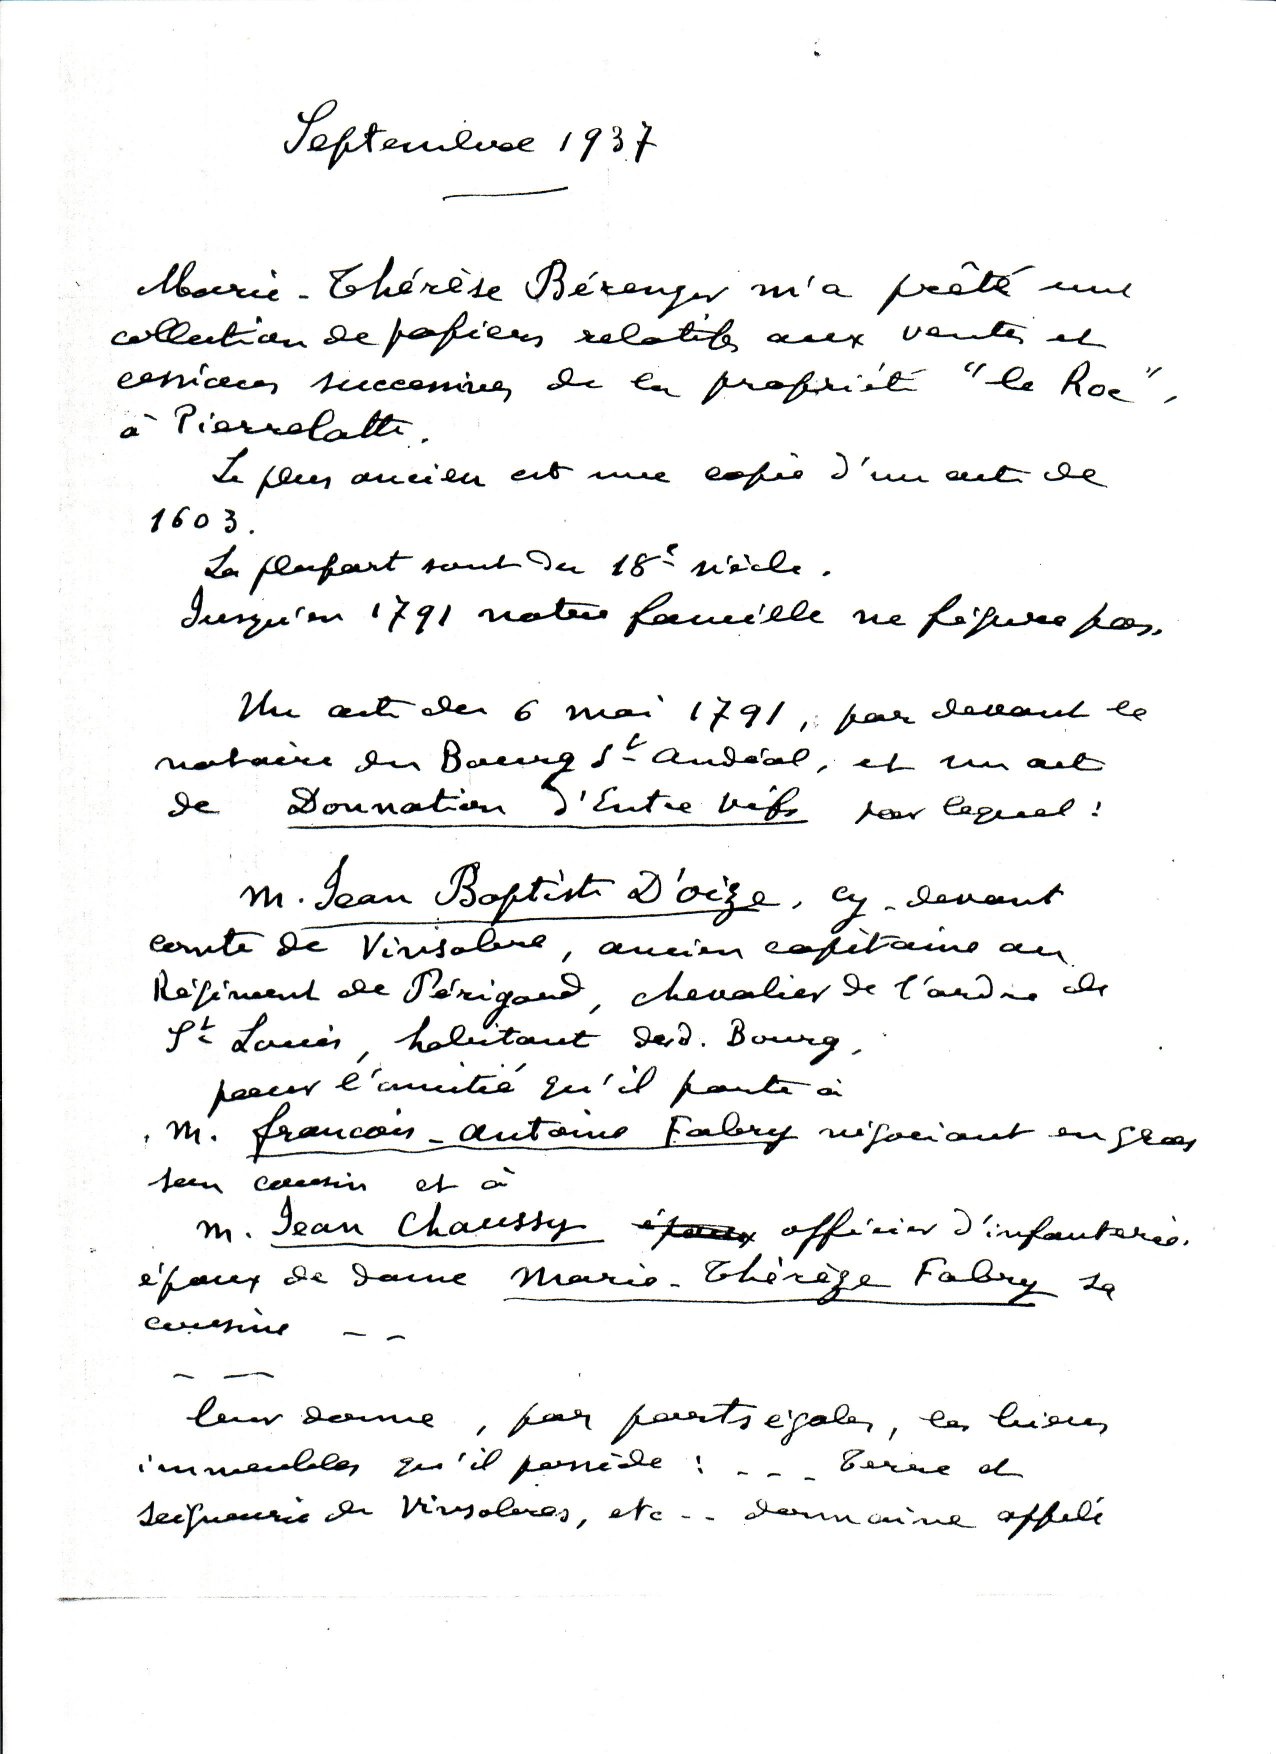 Septembre 1937
Marie-Thérèse Bérenger m'a prêté une
collection de papiers relatifs aux ventes et
cessions successives de la propriété "le Roc",
à Pierrelatte.
Le plus ancien est une copie d'un acte de
1603.
La plupart sont du 18e siècle.
Jusqu'en 1791 notre famille ne figure pas.
Un acte du 6 mai 1791, par devant le
notaire du Bourg St Andéol, et un acte
de Donnation d'Entre Vifs par lequel :
M. Jean Baptiste D'oize, cy-devant
comte de Vinsobre, ancien capitaine au
Régiment de Périgaud, chevalier de l'ordre de
St Louis, habitant dud. Bourg,
pour l'amitié qu'il porte à
M. francois-antoine Fabry négociant en gros
son cousin et à
M. Jean Chaussy époux officier d'infanterie.
époux de dame Marie-Thérèze Fabry sa
cousine - -
- -
leur donne, par parts égales, les biens
immeubles qu'il possède : - - - Terre et
seigneurie de Vinsobres, etc -- dommaine appelé